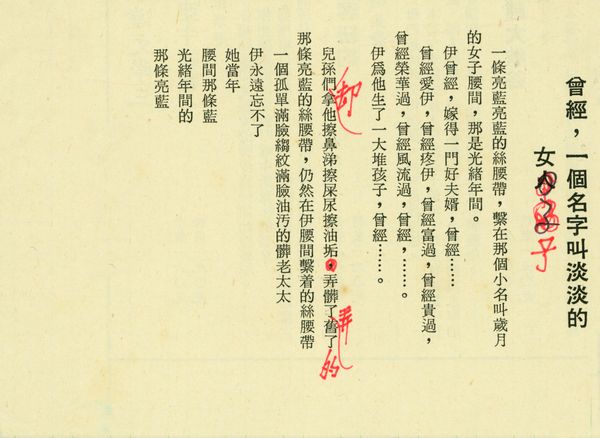 曾經，一個名字叫淡淡的
女人子
一條亮藍亮藍的絲腰帶，繫在那個小名叫歲月
的女子腰間，那是光緒年間。
伊曾經，嫁得一門好夫婿，曾經……
曾經愛伊，曾經疼伊，曾經富過，曾經貴過，
曾經榮華過，曾經風流過，曾經，……。
伊爲他生了一大堆孩子，曾經……。
兒孫們拿他擦鼻涕擦屎尿擦油垢，弄髒了舊了
弄的
那條亮藍的絲腰帶，仍然在伊腰間繫着的絲腰帶
一個孤單滿臉縐紋滿臉油污的髒老太太
伊永遠忘不了
她當年
腰間那條藍
光緒年間的
那條亮藍